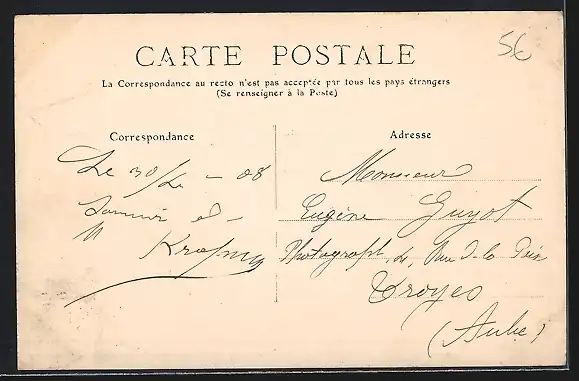 5€
CARTE POSTALE
La Correspondance au recto n'est pas acceptée par tous les pays étrangers
(Se renseigner à la Poste)
Correspondance
Adresse
Le 30/ - 08
Monsieur
Souvenir d
Eugène Guyot
Photograph, Rue de la
Troyes
(Aube)